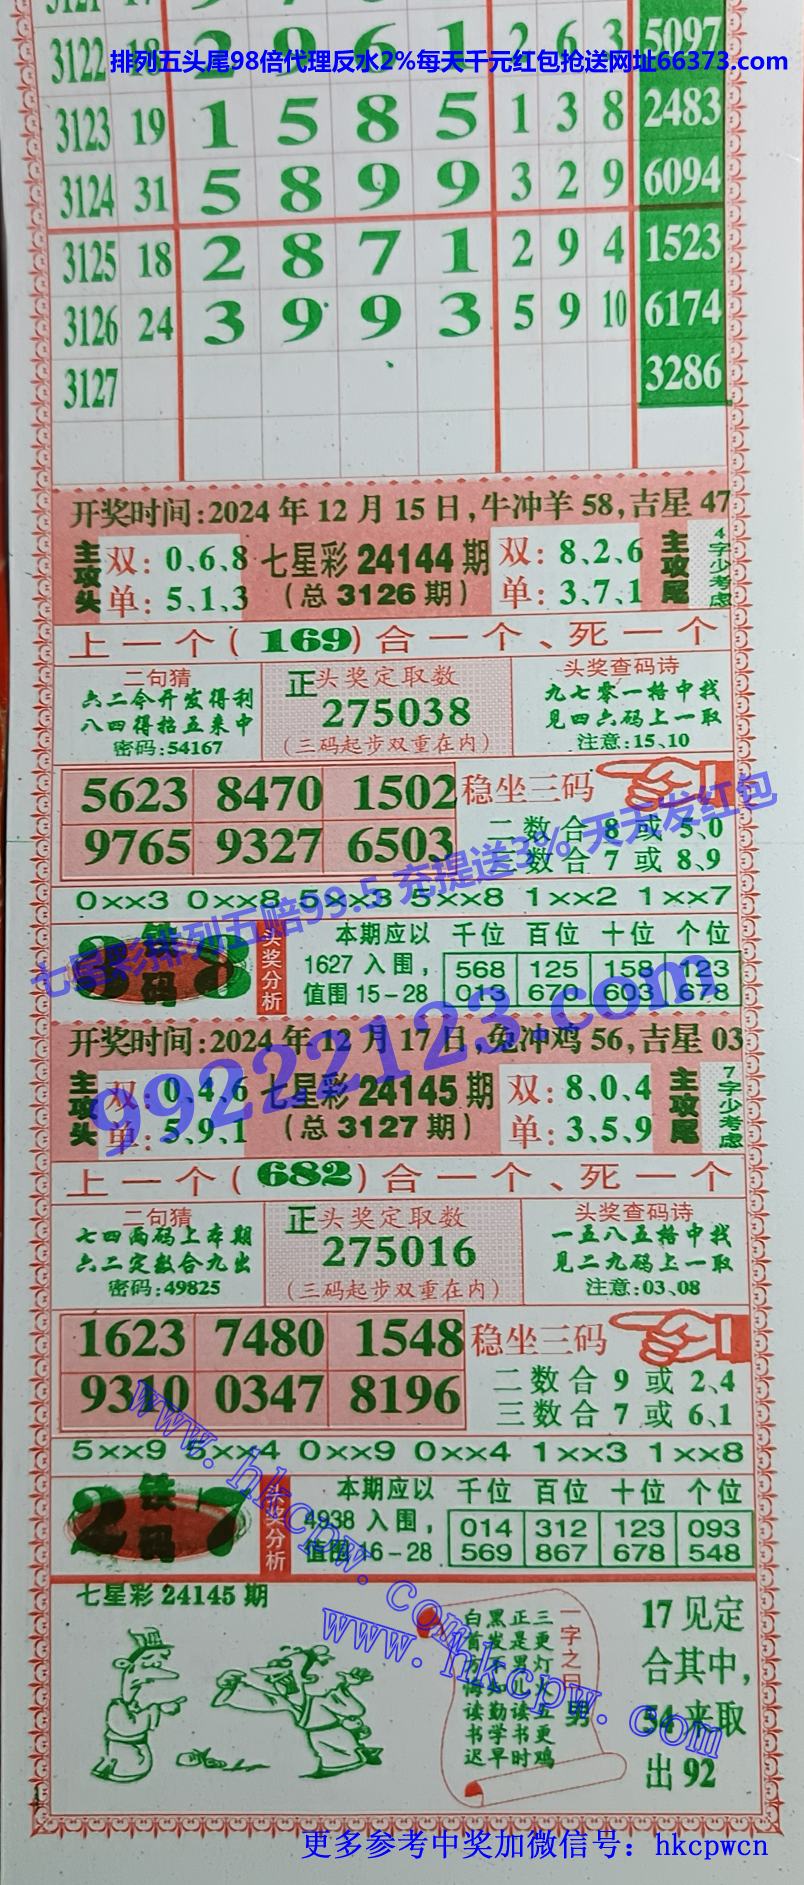 3121 17
3122 18 2 9 6 1 2 6 3 5097
排列五头尾98倍代理反水2%每天千元红包抢送网址66373.com
3123 19 1 5 8 5 1 3 8 2483
3124 31 5 8 9 9 3 2 9 6094
3125 18 2 8 7 1 2 9 4 1523
3126 24 3 9 9 3 5 9 10 6174
3127 3286
开奖时间:2024年12月15日,牛冲羊58,吉星47
主攻头
双: 0、6、8
单: 5、1、3
七星彩24144期
(总3126期)
双: 8、2、6
单: 3、7、1
主攻尾
4字少考虑
上一个(169)合一个、死一个
二句猜
六二今开发得利
八四得招五来中
密码:54167
正头奖定取数
275038
(三码起步双重在内)
头奖查码诗
九七零一格中找
见四六码上一取
注意:15、10
5623 8470 1502
9765 9327 6503
稳坐三码
二数合8或5、0
三数合7或8、9
0××3 0××8 5××3 5××8 1××2 1××7
3铁码8
头奖分析
本期应以 千位 百位 十位 个位
1627入围, 568 125 158 123
值围15-28 013 670 603 678
七星彩排列五赔99.5 充提送3% 天天发红包
99222123.com
开奖时间:2024年12月17日,兔冲鸡56,吉星03
主攻头
双: 0、4、6
单: 5、9、1
七星彩24145期
(总3127期)
双: 8、0、4
单: 3、5、9
主攻尾
7字少考虑
上一个(682)合一个、死一个
二句猜
七四两码上本期
六二定数合九出
密码:49825
正头奖定取数
275016
(三码起步双重在内)
头奖查码诗
一五八五格中找
见二九码上一取
注意:03、08
1623 7480 1548
9310 0347 8196
稳坐三码
二数合9或2、4
三数合7或6、1
5××9 5××4 0××9 0××4 1××3 1××8
2铁码7
头奖分析
本期应以 千位 百位 十位 个位
4938入围, 014 312 123 093
值围16-28 569 867 678 548
www.hkcpw.com
七星彩24145期
一字之曰:男
三更灯火五更鸡
正是男儿读书时
黑发不知勤学早
白首方悔读书迟
17见定
合其中,
54来取
出92
www.hkcpw.com
更多参考中奖加微信号：hkcpwcn